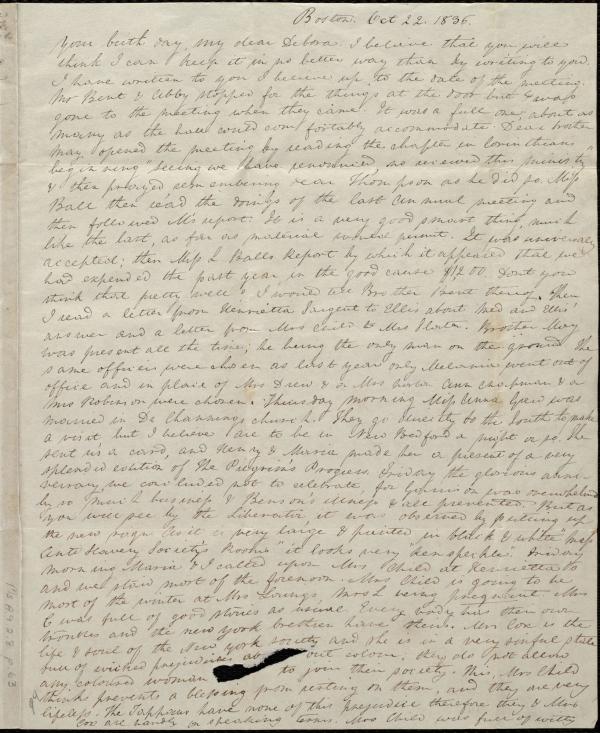 Boston. Oct 22. 1836.
Your birth day, my dear Debora. I believe that you will
think I can keep it in no better way than by writing to you.
I have written to you I believe up to the date of the meeting.
Mr Bent & Abby stopped for the things at the door but I was
gone to the meeting when they came. It was a full one, about as
many as the hall could comfortably accommodate. Dear brother
May opened the meeting by reading the chapter in Corinthians
beginning "seeing we have renounced as received this ministry"
& then prayed remembering dear Thompson as he did so. Miss
Ball then read the doings of the last annual meeting and
then followed M's report. It is a very good smart thing, much
like the last, as far as material would permit. It was universally
accepted; then Miss L Balls Report by which it appeared that we
had expended the past year in the good cause $1200. Dont you
think that pretty well? I would tell Brother Bent thereof. Then
I read a letter from Henrietta Sargent to Ellis about Med and Ellis'
answer and a letter from Mrs Child & Mrs . Brother May
was present all the time; he being the only man on the ground. The
same officers were chosen as last year only Melania went out of
office and in place of Mrs Drew & Mrs Ann Chapman &
Mrs Robinson were chosen. Thursday morning Miss Anna Grew was
married in Dr Channings church. They go directly to the South to make
a visit, but I believe are to be in New Bedford a night or so. She
sent us a card, and Henry & Maria made her a present of a very
splendid edition of The Pilgrim's Progress. Friday the glorious anni-
versary we concluded not to celebrate for Garrison was overwhelmed
by so much business & Benson's illness & all prevented. But as
you will see by the Liberator it was observed by putting up
the new sign. It is a very large & painted in black & white Mass
Anti Slavery Society's Rooms" it looks very "kenspeckle". Friday
morning Maria & I called upon Mrs Child at Henrietta's
and we staid most of the forenoon. Mrs Child is going to be
most of the winter at Mrs Lorings, Mrs L being pregnant. Mrs
C was full of good stories as usual. Every body has their own
troubles and the New York brethren have theirs. Mrs Cox is the
life & soul of the New York society and she is in a very sinful state
full of wicked prejudices about colour, they do not allow
any coloured woman to join their society. This, Mrs Child
thinks prevents a blessing from resting on them, and they are very
lifeless. The Tappans have none of this prejudice therefore they & Mrs
Cox are hardly on speaking terms. Mrs Child was full of witty